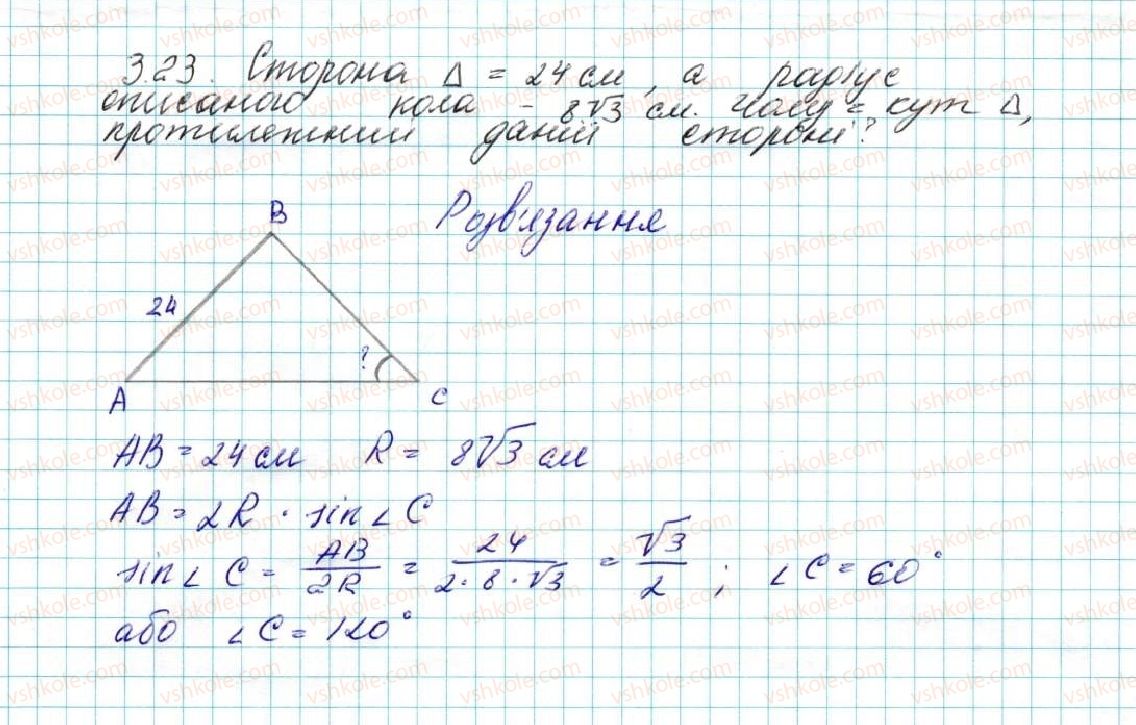 3.23. Сторона Δ = 24 см, а радіус
описаного кола - 8√3 см. Чому = кут Δ,
протилежний даній стороні?
Розв'язання
B
24
?
A
C
AB = 24 см R = 8√3 см
AB = 2R · sin∠C
sin∠C = AB/2R = 24/2·8·√3 = √3/2 ; ∠C = 60°
або ∠C = 120°
vshkole.com